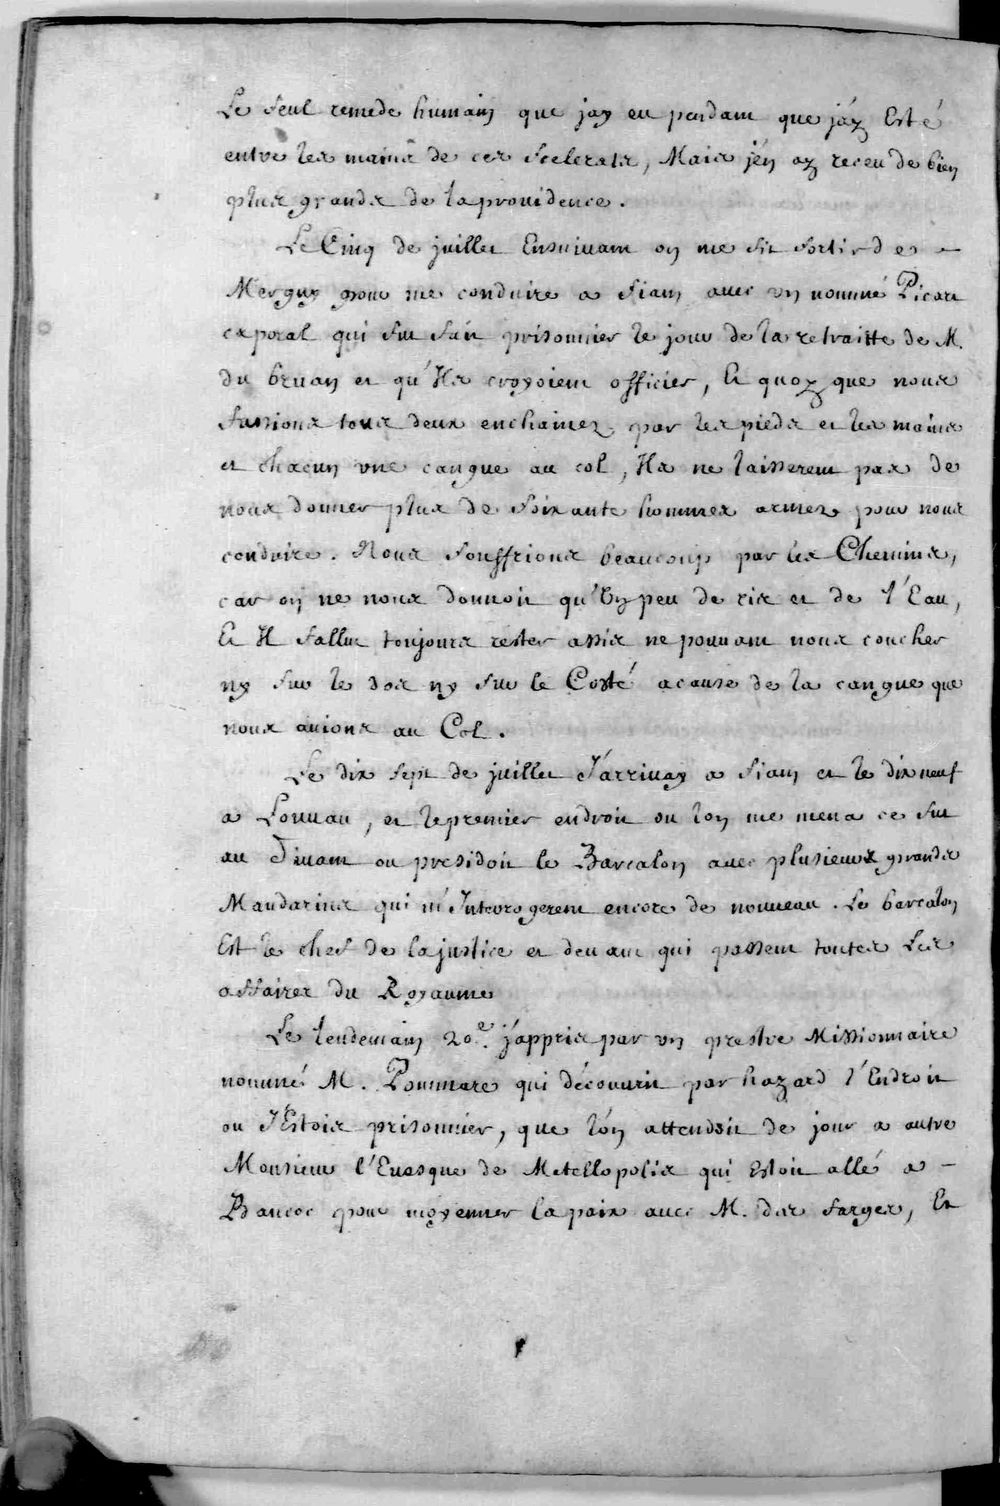 Le seul remede humain que j'ay eu pendant que j'ay Esté
entre les mains de ces scelerats, Mais j'en ay receu de bien
plus grands de la prouidence.
Le Cinq de juillet Ensuiuant on me fit sortir de –
Merguy pour me conduire a Siam auec un nommé Picart
caporal qui fut fait prisonnier le jour de la retraitte de M.
du bruan et qu'Ils croyoient officier, Et quoy que nous
fussions tous deux enchainez par les pieds et les mains
et chacun vne cangue au col, Ils ne laisserent pas de
nous donner plus de soixante hommes armez pour nous
conduire. Nous souffrions beaucoup par les Chemins,
car on ne nous donnoit qu'Vn peu de ris et de l'Eau,
Et Il fallut toujours rester assis ne pouuant nous coucher
ny sur le dos ny sur le Costé acause de la cangue que
nous auions au Col.
Le dix sept de juillet J'arriuay a Siam et le dix neuf
a Louuau, et le premier endroit ou lon me mena ce fut
au Diuant ou presidoit le Barcalon auec plusieurs grands
Mandarins qui m'Interogerent encore de nouueau. Le barcalon
Est le chef de la justice et deuant qui passent toutes Les
affaires du Royaume
Le lendemain 20.e j'appris par vn prestre Missionnaire
nommé M. Pommare qui décourit par hazard l'Endroit
ou J'Estois prisonnier, que l'on attendoit de jour a autre
Monsieur l'Euesque de Metellopolis qui Estoit allé a –
Bancoc pour moyenner la paix auec M. des farges, Et